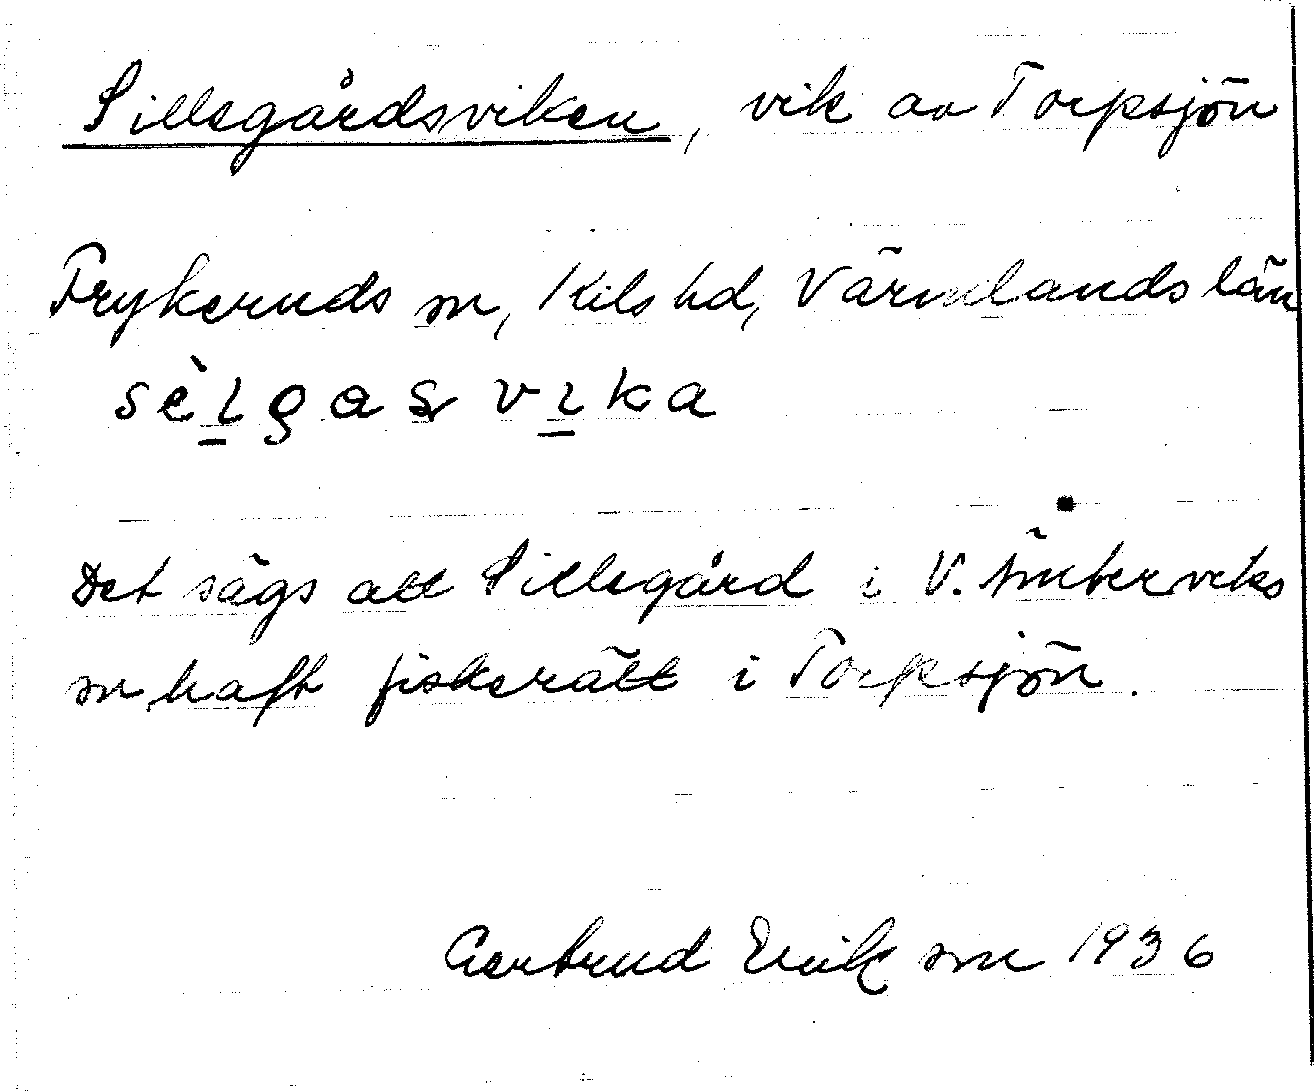 Sillegårdsviken, vik av Torpsjön
Frykeruds sn, Kils hd, Värmlands län
Det sägs att Sillegård i V. Ämterviks
sn haft fiskerätt i Torpsjön.
Gertrud Erikson 1936